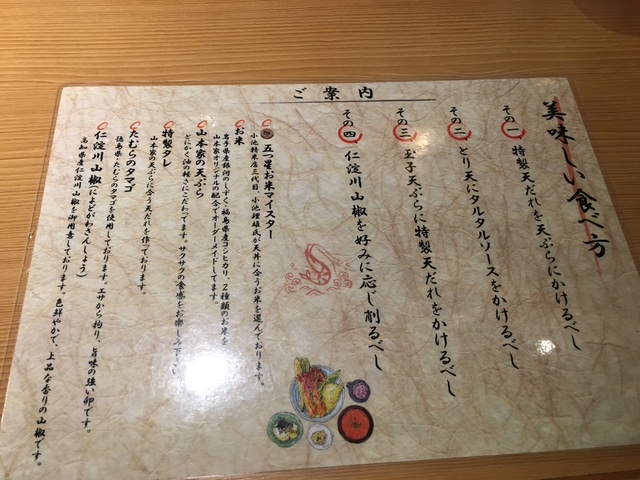 ご案内
美味しい食べ方
その一、特製天だれを天ぷらにかけるべし
その二、とり天にタルタルソースをかけるべし
その三、玉子天ぷらに特製天だれをかけるべし
その四、仁淀川山椒を好みに応じ削るべし
五つ星お米マイスター
小池精米店三代目・小池理雄氏が天丼に合うお米を選んでおります。
お米
岩手県産銀河のしずく・福島県産コシヒカリ、2種類のお米を
山本家オリジナルの配合でオーダーメイドしてます。
山本家の天ぷら
とにかく油の軽さにこだわってます。サクサクの食感をお楽しみ下さい。
特製タレ
山本家の天ぷらに合う天だれを作っております。
たむらのタマゴ
徳島県・たむらのタマゴを使用しております。エサから拘り、旨味の強い卵です。
仁淀川山椒(によどがわさんしょう)
高知県産仁淀川山椒を御用意しております。色鮮やかで、上品な香りの山椒です。